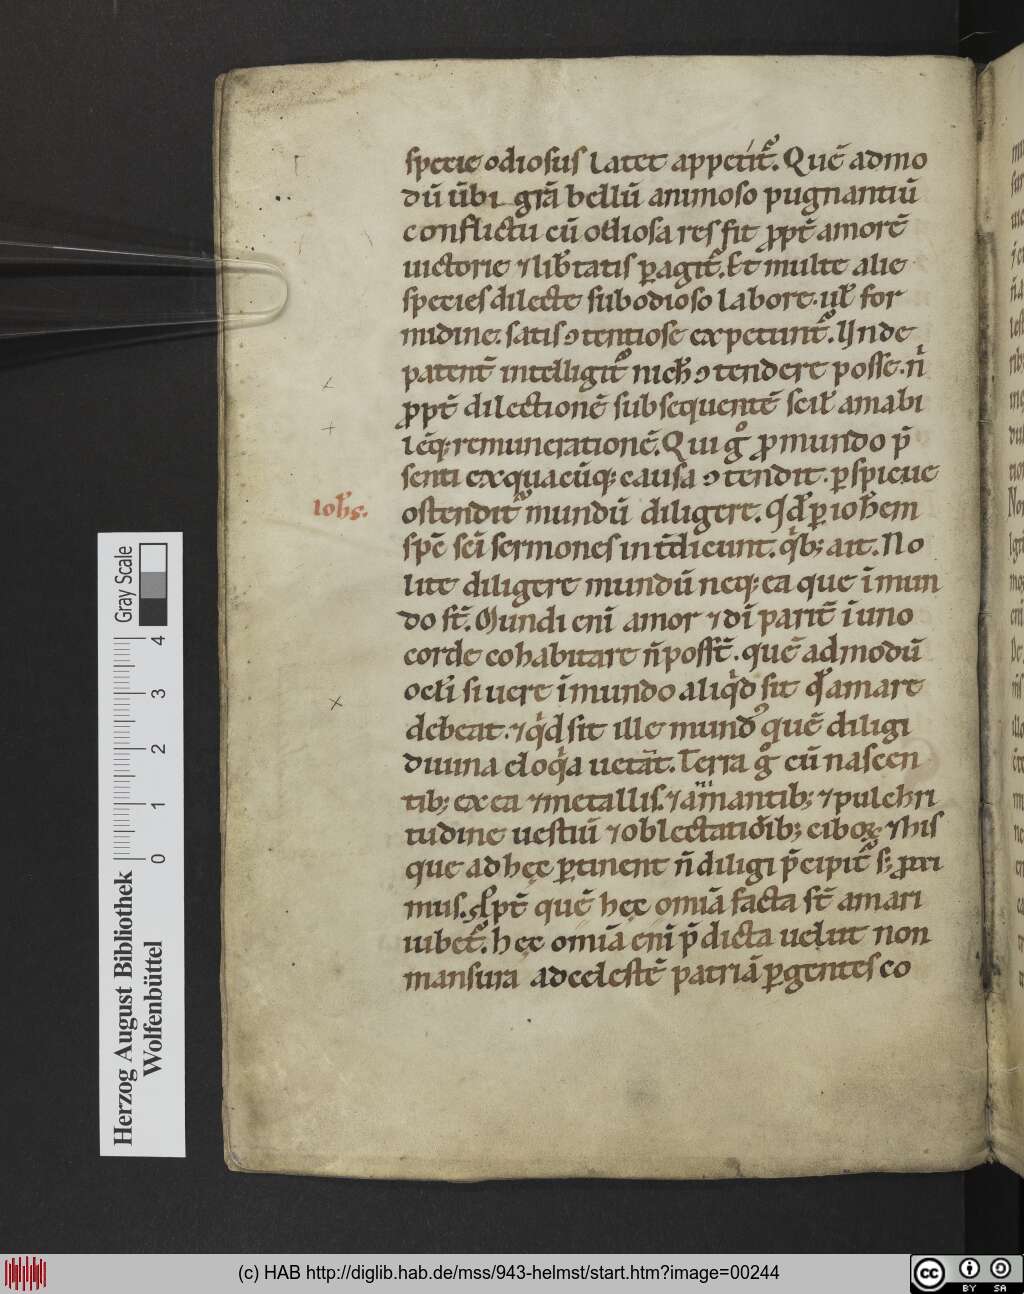 specie odiosus latet appetit᷑. Quē admo
dū ūbi grā bellū animoso pugnantiū
conflictu cū odiosa res fit ꝓpt̄ amorē
uictorie ⁊ lib̄tatis ꝑagit᷑. Et multe alie
species dilecte sub odioso labore. ul̄ for
midine. satis ꝯtentiose expetunt᷑. Unde
patent̄ intelligit᷑ nich̄ ꝯtendere posse. n̄
ꝓpt̄ dilectionē subsequentē scil̄ amabi
lēq; remunerationē. Qui gͦ ꝓ mundo p̄
senti ex quacūq; causa ꝯtendit. ꝑspicue
Ioh̄s.
ostendit᷑ mundū diligere. Qd̄ ꝑ ioh̄em
spē sc̄i sermones int̄dicunt. qͥb; ait. No
lite diligere mundū neq; ea que ī mun
do st̄. Mundi enī amor ⁊ dī parit̄ ī uno
corde cohabitare n̄ possꝭ̄. quē admodū
ocl̄i si uere ī mundo aliqͥd sit qd̄ amare
debeat. ⁊ qͥd sit ille mundꝰ quē diligi
diuina eloqͥa uetāt. Terra gͦ cū nascen
tib; ex ea ⁊ metallis. ⁊ aīmantib; ⁊ pulchri
tudine uestiū ⁊ oblectatiōib; ciboꝝ ⁊ his
que ad hęc ꝑtinent n̄ diligi p̄cipit᷑ s; ꝓxi
mus. ꝓpt̄ quē hęc omīa facta st̄ amari
iubet᷑. hęc omīa enī p̄dicta uelut non
mansura ad celestē patriā ꝑgentes co
Herzog August Bibliothek
Wolfenbüttel
0 1 2 3 4
Gray Scale
(c) HAB http://diglib.hab.de/mss/943-helmst/start.htm?image=00244
cc BY SA